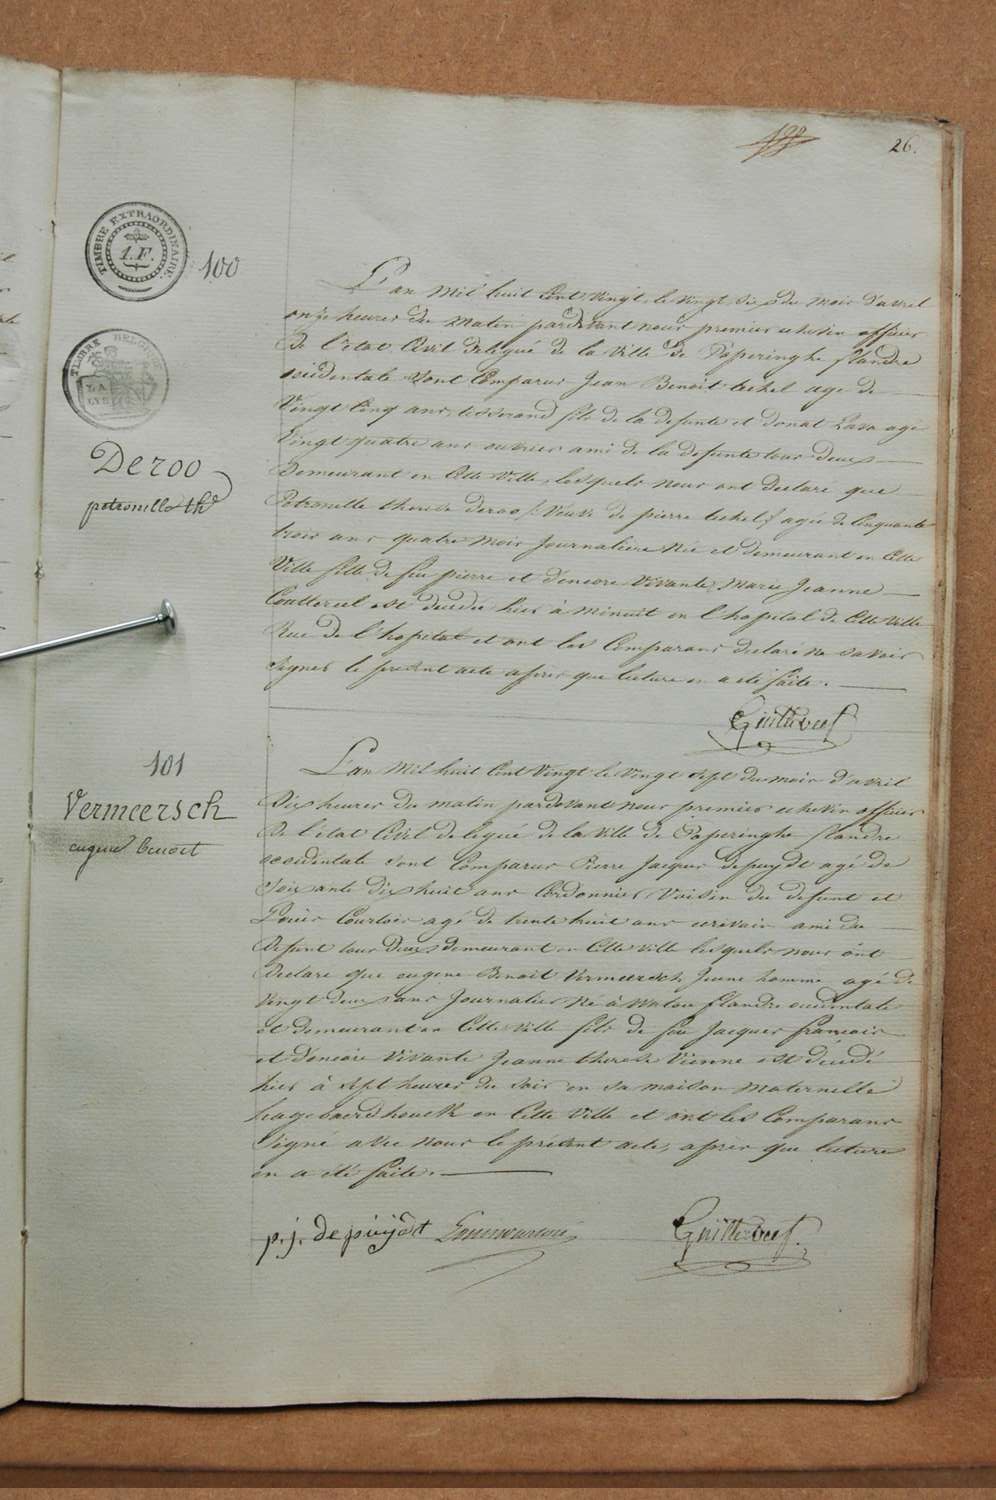 26.
TIMBRE EXTRAORDINAIRE.
1. F.
100
TIMBRE BELGIQUE
LA LYS
Deroo
petronille th
L'an Mil huit Cent Vingt le vingt six du mois d'avril
onze heures du Matin pardevant nous premier echevin officier
de l'état Civil delegué de la Ville de Poperinghe flandre
occidentale Sont Comparus Jean Benoit bekel age de
Vingt Cinq ans tisserand fils de la defunte et donat agé
Vingt quatre ans ouvrier ami de la defunte tous deux
demeurant en Cette Ville, lesquels nous ont declaré que
Petronille therese deroo Veuve de pierre bekel agée de Cinquante
trois ans quatre mois Journaliere Née et demeurant en Cette
Ville fille de feu pierre et d'encore Vivante Marie Jeanne
est decedée hier à minuit en l'hopital de Cette Ville
Rue de l'hopital et ont les Comparans declaré ne savoir
Signer le present acte après que lecture en a été faite.
101
Vermeersch
eugene benoit
L'an Mil huit Cent Vingt le Vingt Sept du mois d'avril
Dix heures du matin pardevant nous premier echevin officier
de l'état Civil delegué de la Ville de Poperinghe flandre
occidentale Sont Comparus Pierre Jacques depuydt agé de
Soixante dix huit ans Cordonnier Voisin du defunt et
Louis Courtois agé de trente huit ans ecrevain ami du
defunt tous Deux demeurant en Cette Ville lesquels nous ont
Declaré que eugene Benoit Vermeersch Jeune homme agé de
Vingt deux ans Journalier Né à Watou flandre occidentale
et demeurant en Cette Ville fils de feu Jacques francois
et d'encore Vivante Jeanne therese Vienne est decedé
hier à Sept heures du Soir en sa maison Maternelle
en Cette Ville et ont les Comparans
Signé avec nous le présent acte, après que lecture
en a été faite.
p. j. depuijdt